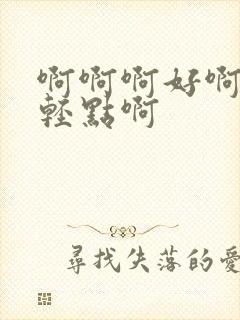 啊啊啊好啊
輕點啊
尋找失落的愛